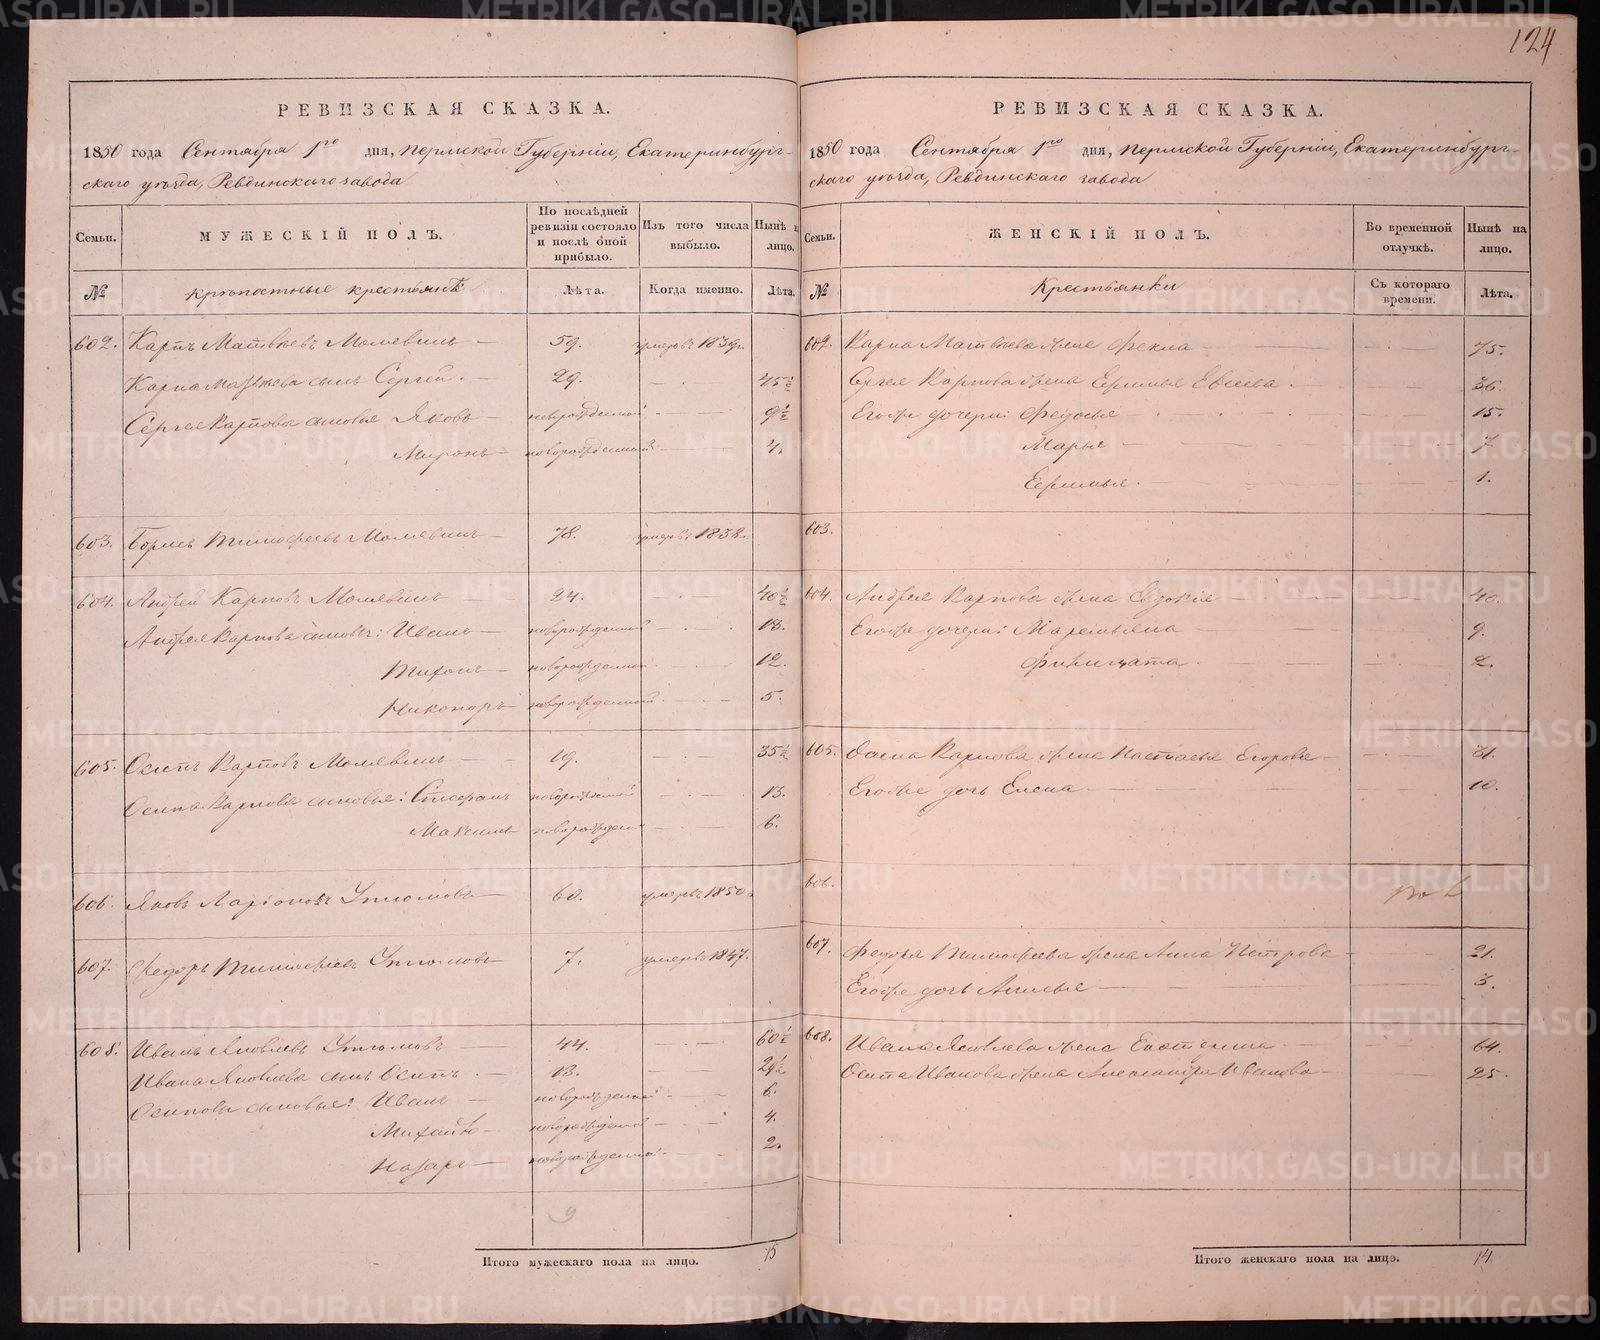 124
РЕВИЗСКАЯ СКАЗКА.
1850 года Сентября 1го дня, Пермской Губерніи, Екатеринбург-
скаго уѣзда, Ревдинскаго завода
Семьи.
МУЖЕСКІЙ ПОЛЪ.
По послѣдней ревизіи состояло и послѣ оной прибыло.
Изъ того числа выбыло.
Нынѣ на лицо.
№
крѣпостные крестьянѣ
Лѣта.
Когда именно.
Лѣта.
602. Карпъ Матвѣевъ 59. умеръ 1839г.
Карпа Матвѣева сынъ Сергей. 29. 45½
Сергея Карпова сыновья Яковъ новорожденной 9½
Миронъ новорожденный 4.
603. Борисъ Тимофеевъ 78. умеръ 1838.
604. Андрей Карповъ 24. 40½
Андрея Карпова сыновья: Иванъ новорожденной 18.
Тихонъ новорожденной 12.
Никоноръ новорожденной 5.
605. Осипъ Карповъ 19. 35½
Осипа Карпова сыновья: Стефанъ новорожденной 13.
Максимъ новорожден 6.
606. Яковъ Ларіоновъ Утюмовъ 60. умеръ 1850.
607. Федоръ Тимофеевъ Утюмовъ 7. умеръ 1847.
608. Иванъ Яковлевъ Утюмовъ 44. 60½
Ивана Яковлева сынъ Осипъ. 13. 29½
Осиповы сыновья: Иванъ новорожденной 6.
Михайло новорожденной 4.
Назаръ новорожденной 2.
9
Итого мужескаго пола на лицо. 15
РЕВИЗСКАЯ СКАЗКА.
1850 года Сентября 1го дня, Пермской Губерніи, Екатеринбург-
скаго уѣзда, Ревдинскаго завода
Семьи.
ЖЕНСКІЙ ПОЛЪ.
Во временной отлучкѣ.
Нынѣ на лицо.
№
Крестьянки
Съ котораго времени.
Лѣта.
602. Карпа Матвѣева жена Фекла 75.
Сергея Карпова жена 36.
Егоже дочери: Федосья 15.
Марья 7.
1.
603.
604. Андрея Карпова жена Евдокія 40.
Егоже дочери: Маремьяна 9.
2.
605. Осипа Карпова жена Настасья Егорова 31.
Егоже дочь Елена 10.
606.
607. Федора Тимофеева жена Анна Петрова 21.
Егоже дочь 3.
608. Ивана Яковлева жена Екатерина 64.
Осипа Иванова жена Александра Иванова 25.
Итого женскаго пола на лицо. 14
METRIKI.GASO-URAL.RU